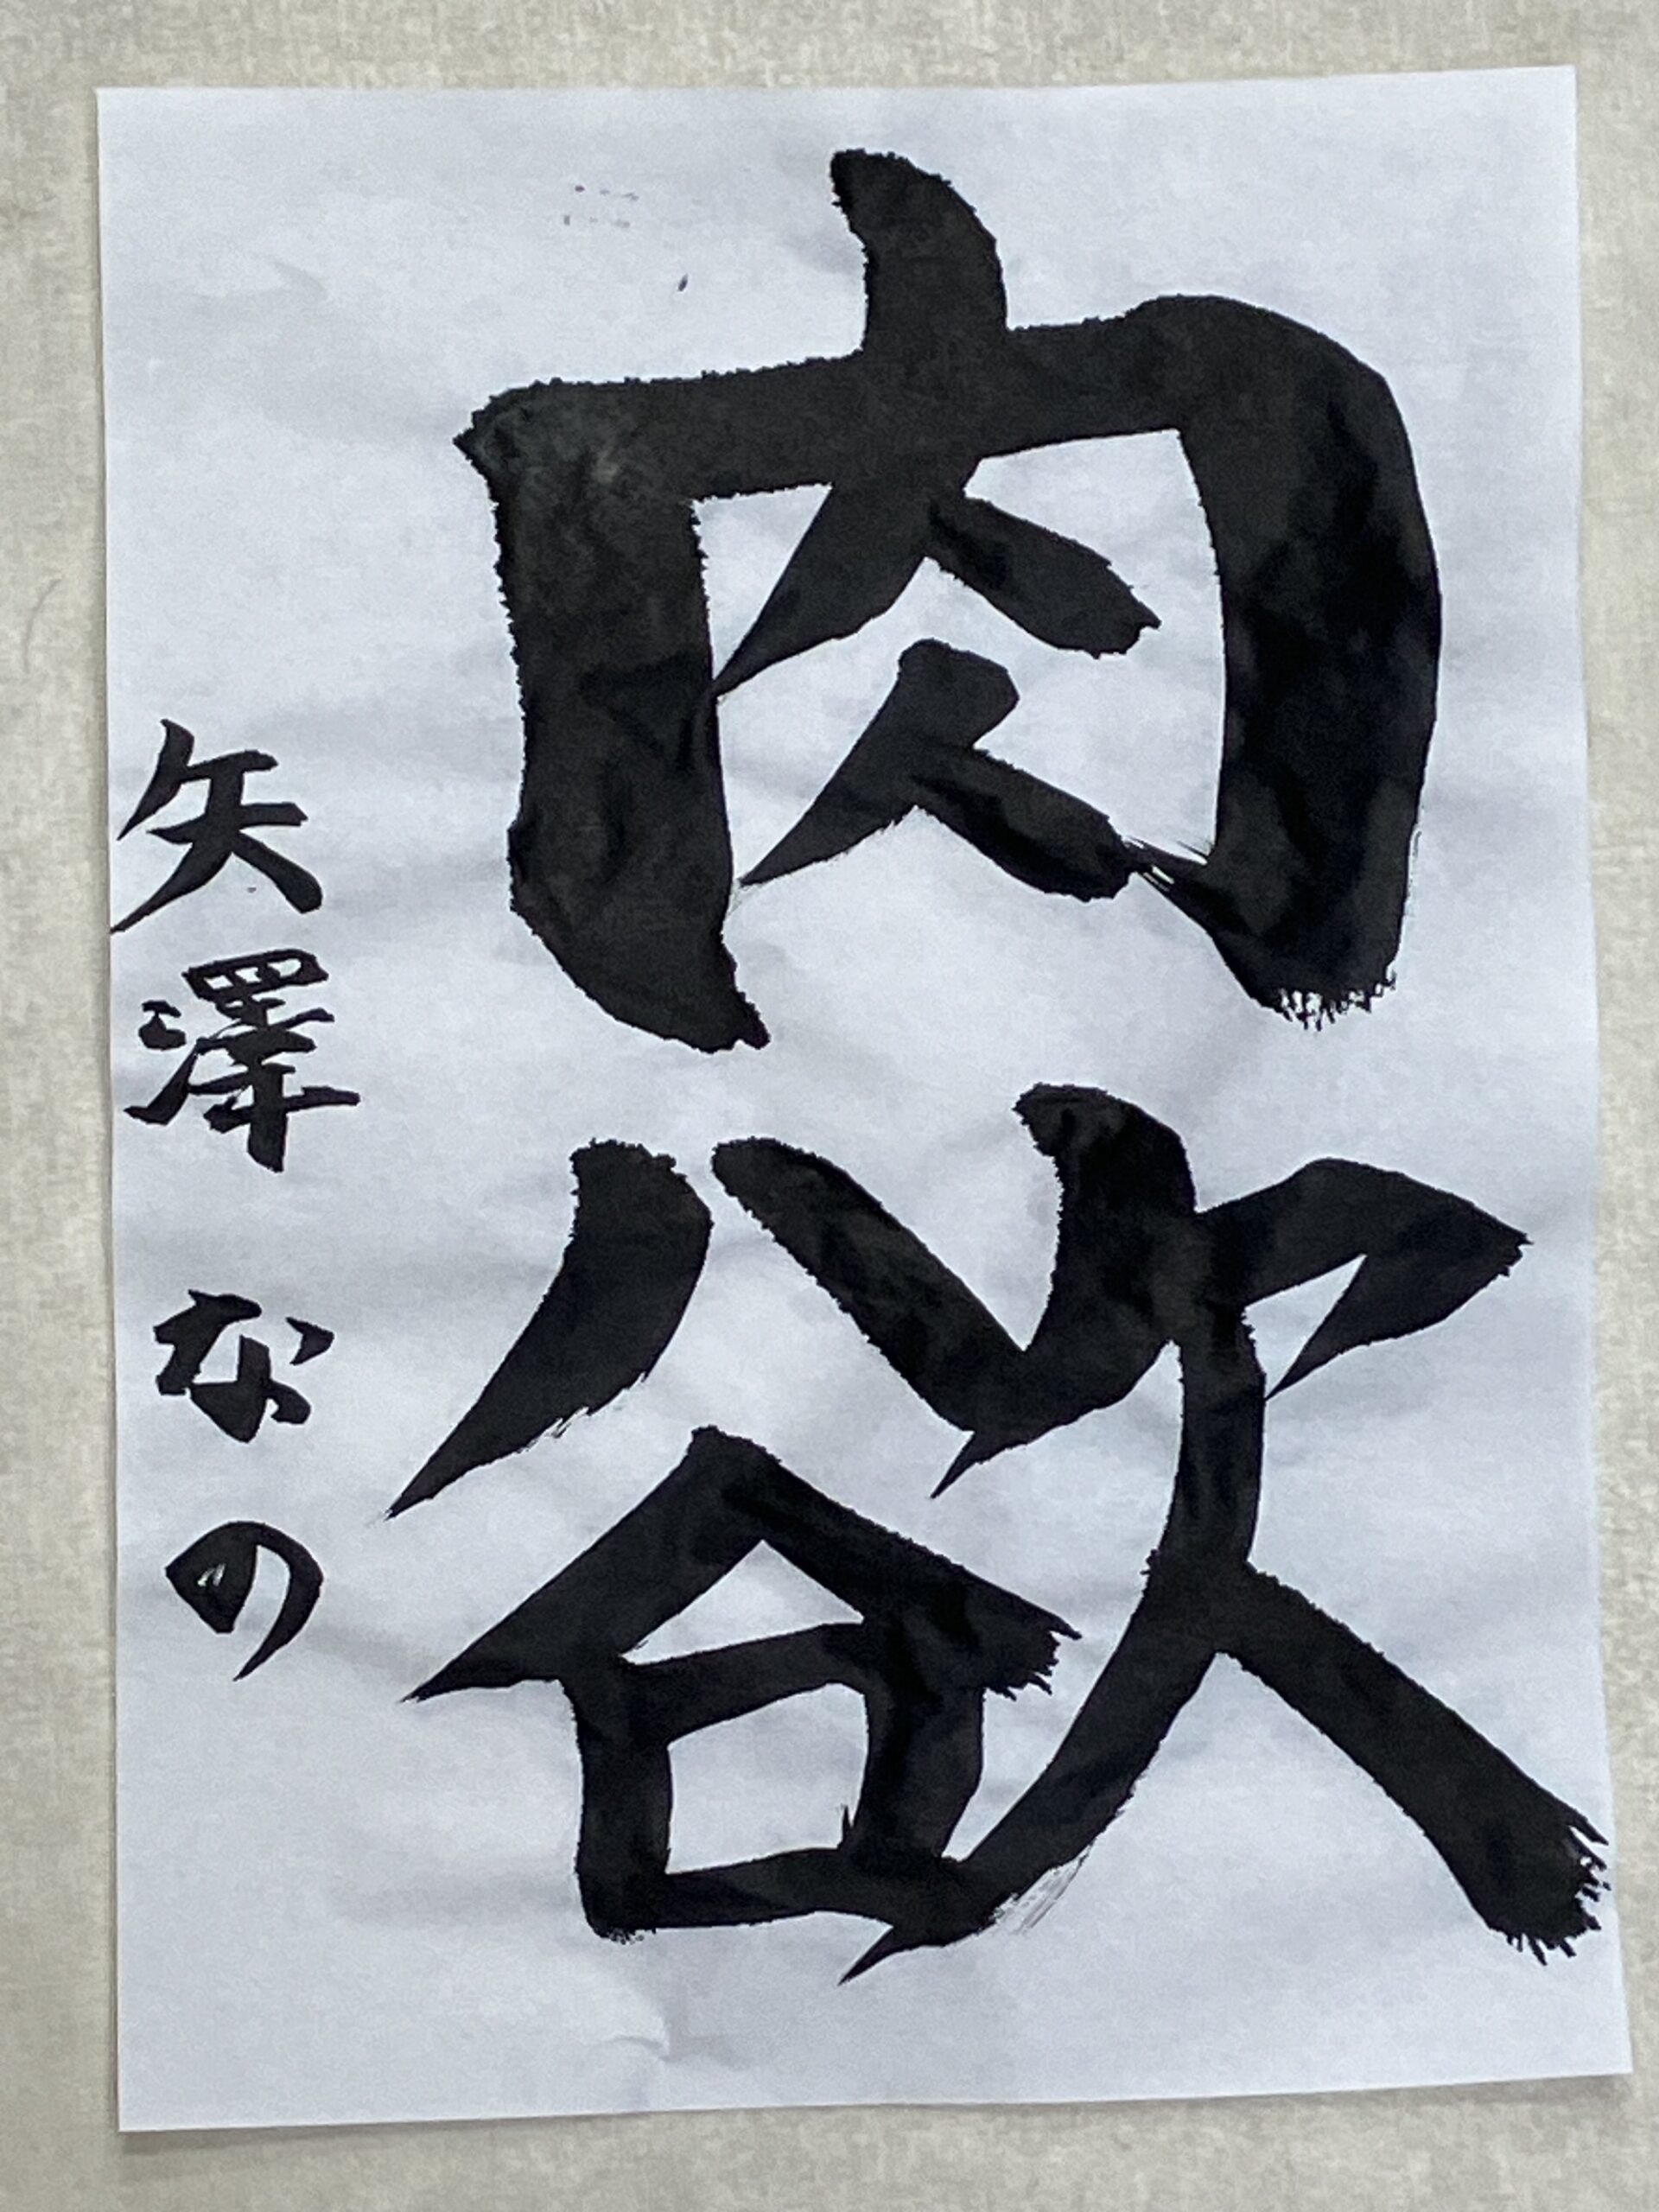 肉欲
矢澤 なの